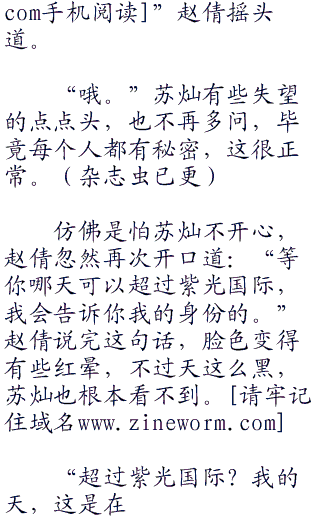 com手机阅读]”赵倩摇头
道。
“哦。”苏灿有些失望
的点点头，也不再多问，毕
竟每个人都有秘密，这很正
常。（杂志虫已更）
仿佛是怕苏灿不开心，
赵倩忽然再次开口道：“等
你哪天可以超过紫光国际，
我会告诉你我的身份的。”
赵倩说完这句话，脸色变得
有些红晕，不过天这么黑，
苏灿也根本看不到。[请牢记
住域名www.zineworm.com]
“超过紫光国际？我的
天，这是在